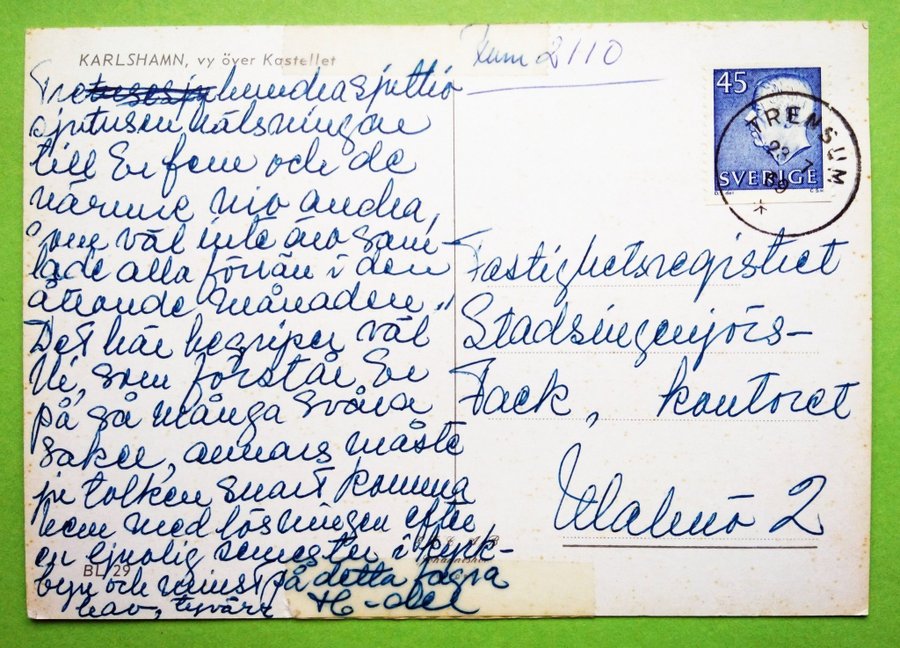 KARLSHAMN, vy över Kastellet
Rum 2110
Tre hundrasjuttio
sjutusen hälsningar
till Er fem och de
närmre nio andra,
som väl inte äro sam-
lade alla förrän i den
åttonde månaden."
Det här begriper väl
Ni, som förstår Er
på så många svåra
saker, annars måste
ju tolken snart komma
hem med lösningen efter
en ljuvlig semester i kyrk-
byn och minst på detta fagra
hav, tyvärr
45
SVERIGE
TRENSUM
23 7
69
Fastighetsregistret
Stadsingenjörs-
Fack, kontoret
Malmö 2
BL 29